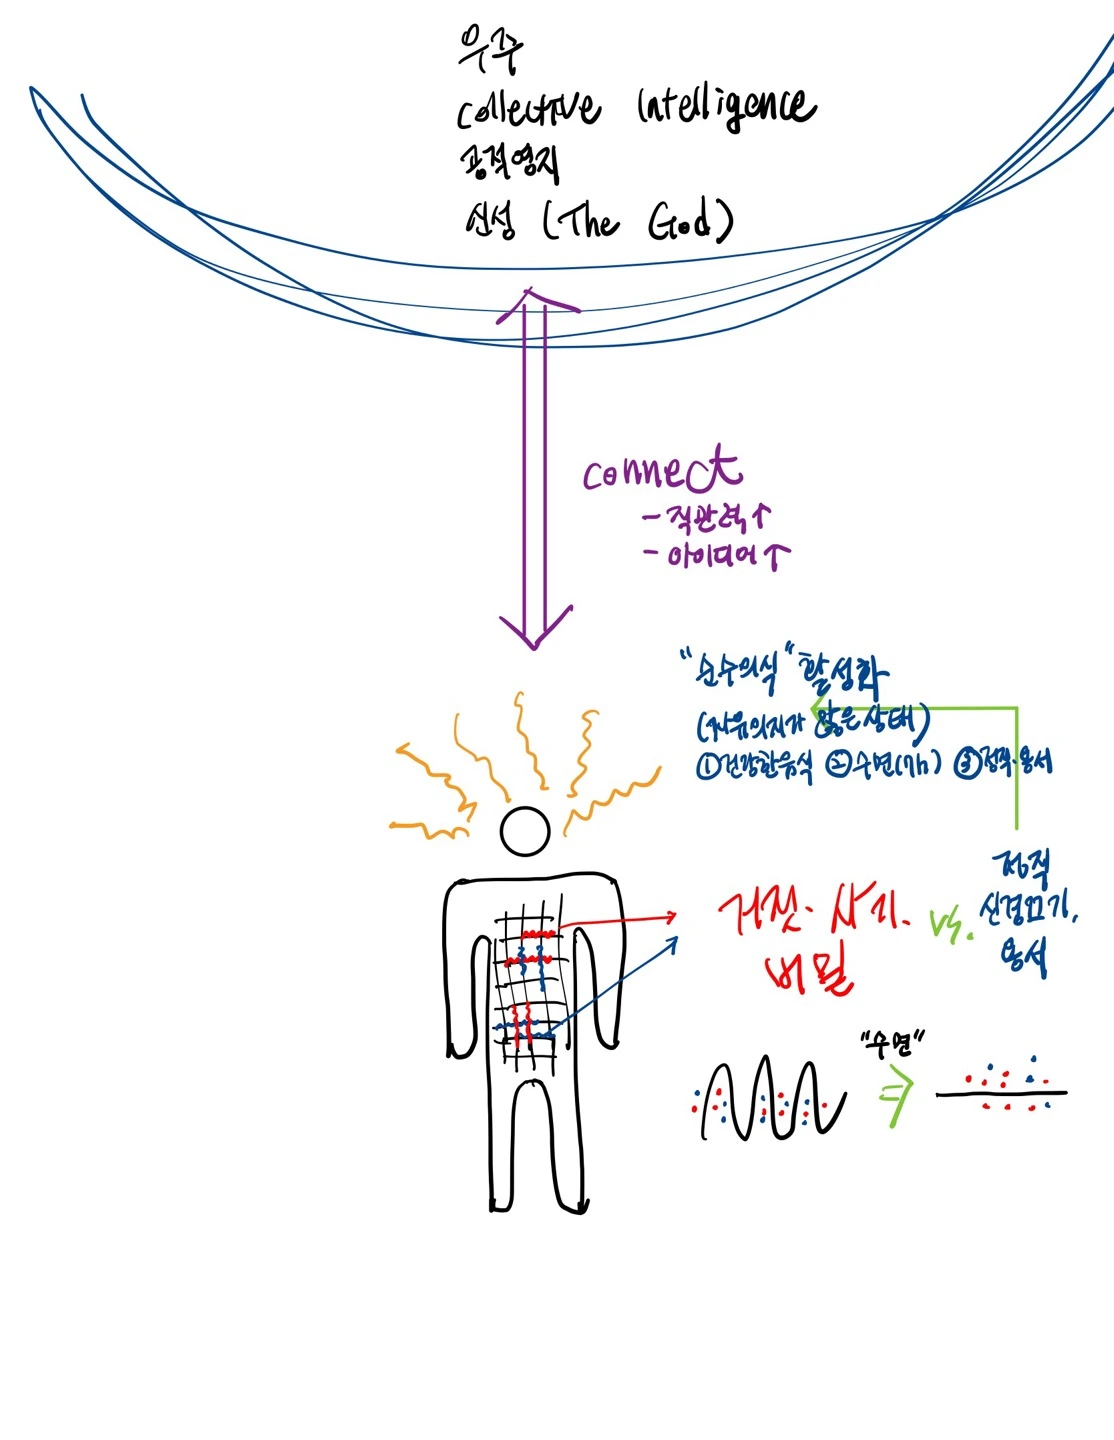 우주
collective Intelligence
공적영지
신성 (The God)
connect
- 직관력↑
- 아이디어↑
"순수의식" 활성화
(자유의지가 많은 상태)
①건강한음식 ②수면(7h) ③정직·용서
거짓·사기·
비밀
vs.
정직
신경끄기,
용서
"수면"